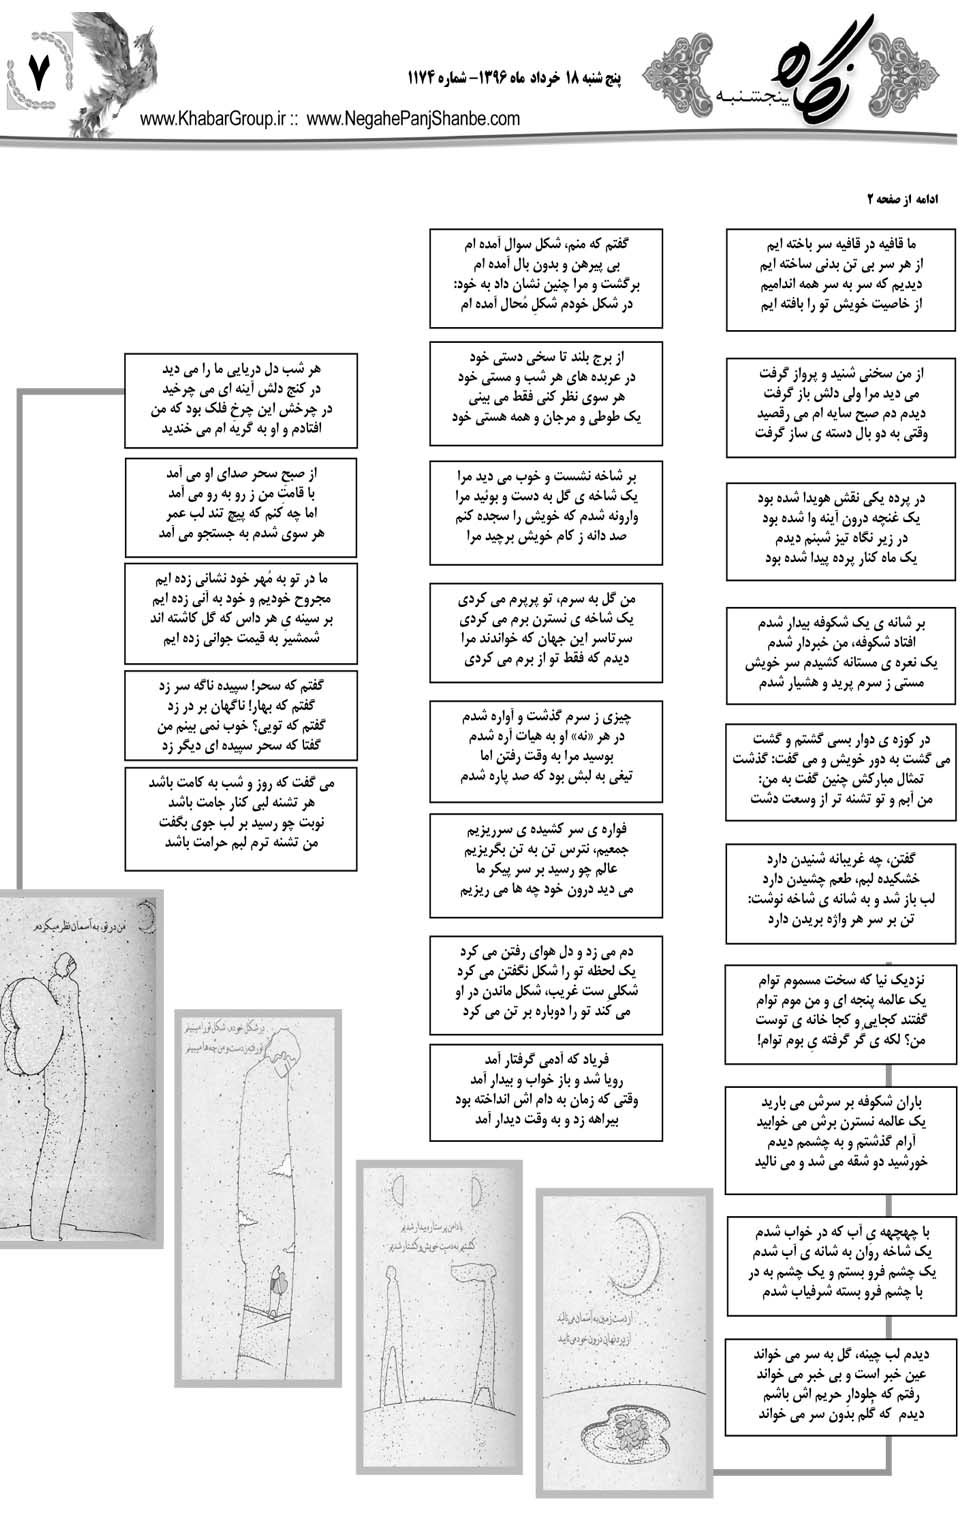 ۷
پنج شنبه ۱۸ خرداد ماه ۱۳۹۶- شماره ۱۱۷۴
نگاه
پنجشنبه
www.KhabarGroup.ir :: www.NegahePanjShanbe.com
ادامه از صفحه ۲
ما قافیه در قافیه سر باخته ایم
از هر سر بی تن بدنی ساخته ایم
دیدیم که سر به سر همه اندامیم
از خاصیت خویش تو را بافته ایم
از من سخنی شنید و پرواز گرفت
می دید مرا ولی دلش باز گرفت
دیدم دم صبح سایه ام می رقصید
وقتی به دو بال دسته ی ساز گرفت
در پرده یکی نقش هویدا شده بود
یک غنچه درون آینه وا شده بود
در زیر نگاه تیز شبنم دیدم
یک ماه کنار پرده پیدا شده بود
بر شانه ی یک شکوفه بیدار شدم
افتاد شکوفه، من خبردار شدم
یک نعره ی مستانه کشیدم سر خویش
مستی ز سرم پرید و هشیار شدم
در کوزه ی دوار بسی گشتم و گشت
می گشت به دور خویش و می گفت: گذشت
تمثال مبارکش چنین گفت به من:
من آبم و تو تشنه تر از وسعت دشت
گفتن، چه غریبانه شنیدن دارد
خشکیده لبم، طعم چشیدن دارد
لب باز شد و به شانه ی شاخه نوشت:
تن بر سر هر واژه بریدن دارد
نزدیک نیا که سخت مسموم توام
یک عالمه پنجه ای و من موم توام
گفتند کجایی و کجا خانه ی توست
من؟ لکه ی گر گرفته ی بوم توام!
باران شکوفه بر سرش می بارید
یک عالمه نسترن برش می خوابید
آرام گذشتم و به چشمم دیدم
خورشید دو شقه می شد و می نالید
با چهچهه ی آب که در خواب شدم
یک شاخه روان به شانه ی آب شدم
یک چشم فرو بستم و یک چشم به در
با چشم فرو بسته شرفیاب شدم
دیدم لب چینه، گل به سر می خواند
عین خبر است و بی خبر می خواند
رفتم که جلودار حریم اش باشم
دیدم که گُلم بدون سر می خواند
گفتم که منم، شکل سوال آمده ام
بی پیرهن و بدون بال آمده ام
برگشت و مرا چنین نشان داد به خود:
در شکل خودم شکلِ مُحال آمده ام
از برج بلند تا سخی دستی خود
در عربده های هر شب و مستی خود
هر سوی نظر کنی فقط می بینی
یک طوطی و مرجان و همه هستی خود
بر شاخه نشست و خوب می دید مرا
یک شاخه ی گل به دست و بوئید مرا
وارونه شدم که خویش را سجده کنم
صد دانه ز کام خویش برچید مرا
من گل به سرم، تو پرپرم می کردی
یک شاخه ی نسترن برم می کردی
سرتاسر این جهان که خواندند مرا
دیدم که فقط تو از برم می کردی
چیزی ز سرم گذشت و آواره شدم
در هر «نه» او به هیات آره شدم
بوسید مرا به وقت رفتن اما
تیغی به لبش بود که صد پاره شدم
فواره ی سر کشیده ی سرریزیم
جمعیم، نترس تن به تن بگریزیم
عالم چو رسید بر سر پیکر ما
می دید درون خود چه ها می ریزیم
دم می زد و دل هوای رفتن می کرد
یک لحظه تو را شکل نگفتن می کرد
شکلی ست غریب، شکل ماندن در او
می کَند تو را دوباره بر تن می کرد
فریاد که آدمی گرفتار آمد
رویا شد و باز خواب و بیدار آمد
وقتی که زمان به دام اش انداخته بود
بیراهه زد و به وقت دیدار آمد
هر شب دل دریایی ما را می دید
در کنج دلش آینه ای می چرخید
در چرخش این چرخ فلک بود که من
افتادم و او به گریه ام می خندید
از صبح سحر صدای او می آمد
با قامت من ز رو به رو می آمد
اما چه کنم که پیچ تند لب عمر
هر سوی شدم به جستجو می آمد
ما در تو به مُهر خود نشانی زده ایم
مجروح خودیم و خود به آنی زده ایم
بر سینه ی هر داس که گل کاشته اند
شمشیر به قیمت جوانی زده ایم
گفتم که سحر! سپیده ناگه سر زد
گفتم که بهار! ناگهان بر در زد
گفتم که تویی؟ خوب نمی بینم من
گفتا که سحر سپیده ای دیگر زد
می گفت که روز و شب به کامت باشد
هر تشنه لبی کنار جامت باشد
نوبت چو رسید بر لب جوی بگفت
من تشنه ترم لبم حرامت باشد
من در تو، به آسمان نظر میکردم
در شکل خودم، شکل تو را میبینم
با دامن پر ستاره بیدار شدیم
گشتیم به دست خویش و کشتار شدیم
از دست زمین به آسمان می نالید